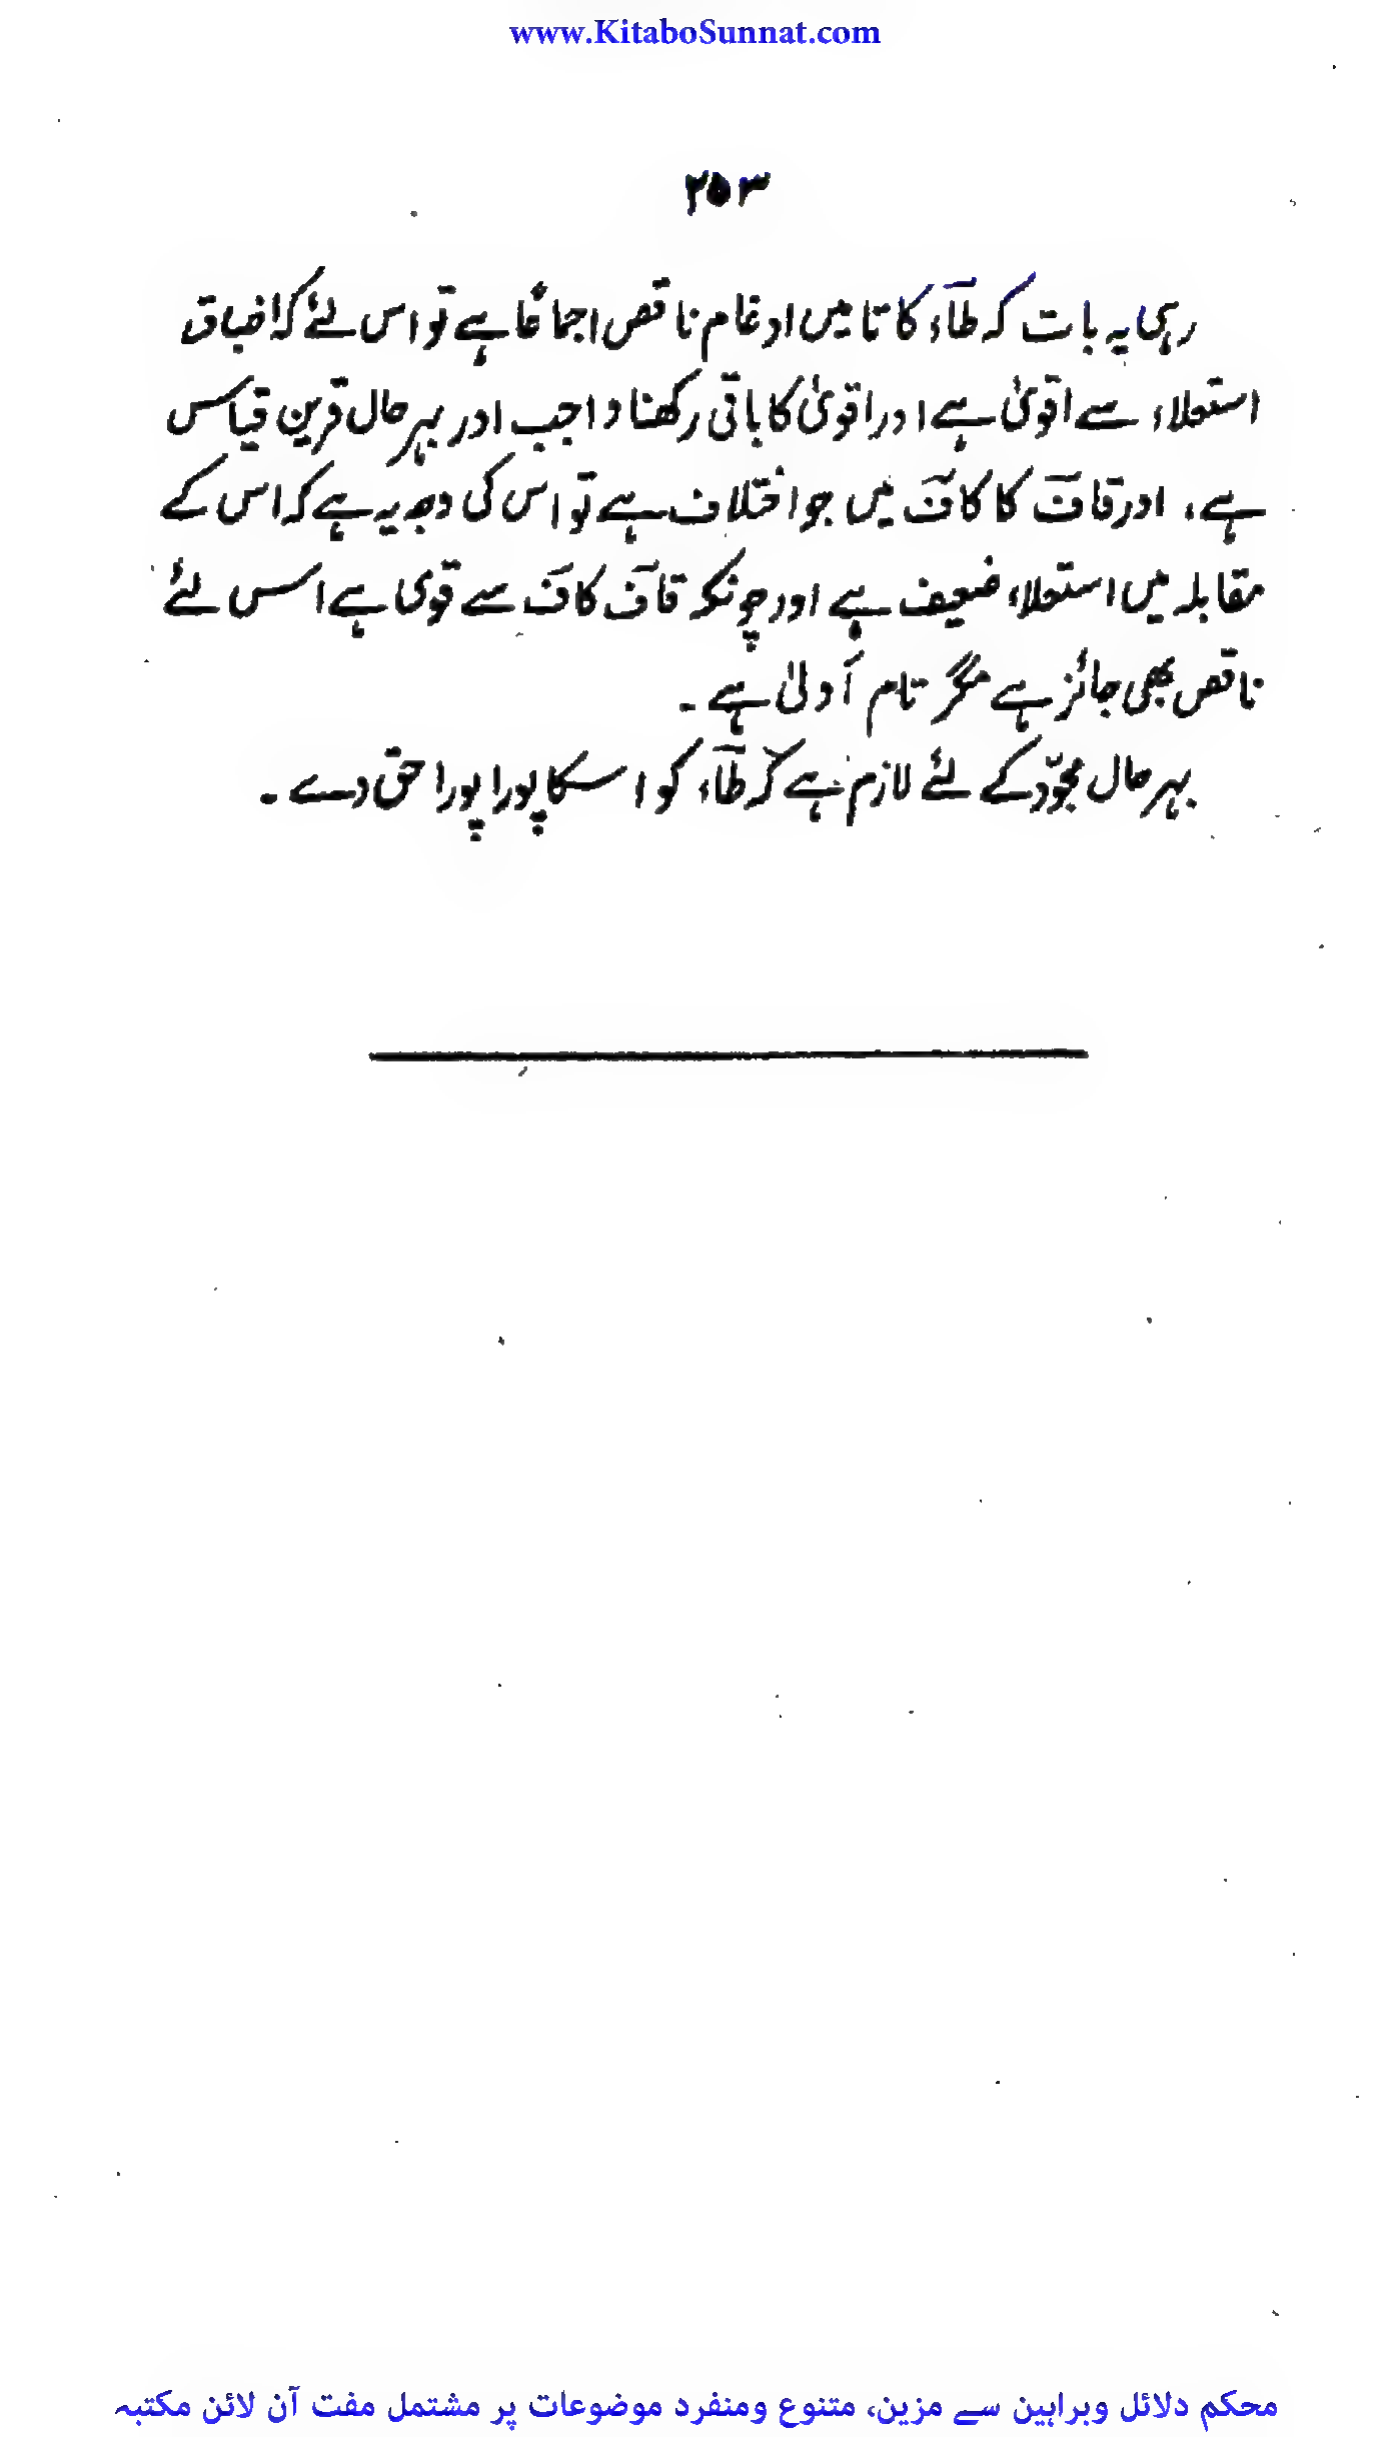 www.KitaboSunnat.com
۲۵۳
رہی یہ بات کہ طآء کا تا میں ادغام ناقص اجماعًا ہے تو اس لئے کہ اطباق
استعلاء سے اقویٰ ہے اور اقویٰ کا باقی رکھنا واجب اور بہر حال قرین قیاس
ہے، اور قاف کا کاف میں جو اختلاف ہے تو اس کی وجہ یہ ہے کہ اس کے
مقابلہ میں استعلاء ضعیف ہے اور چونکہ قاف کاف سے قوی ہے اس لئے
ناقص بھی جائز ہے مگر تام اَولیٰ ہے۔
بہر حال مجوّد کے لئے لازم ہے کہ طآء کو اسکا پورا پورا حق دے۔
محکم دلائل وبراہین سے مزین، متنوع ومنفرد موضوعات پر مشتمل مفت آن لائن مکتبہ